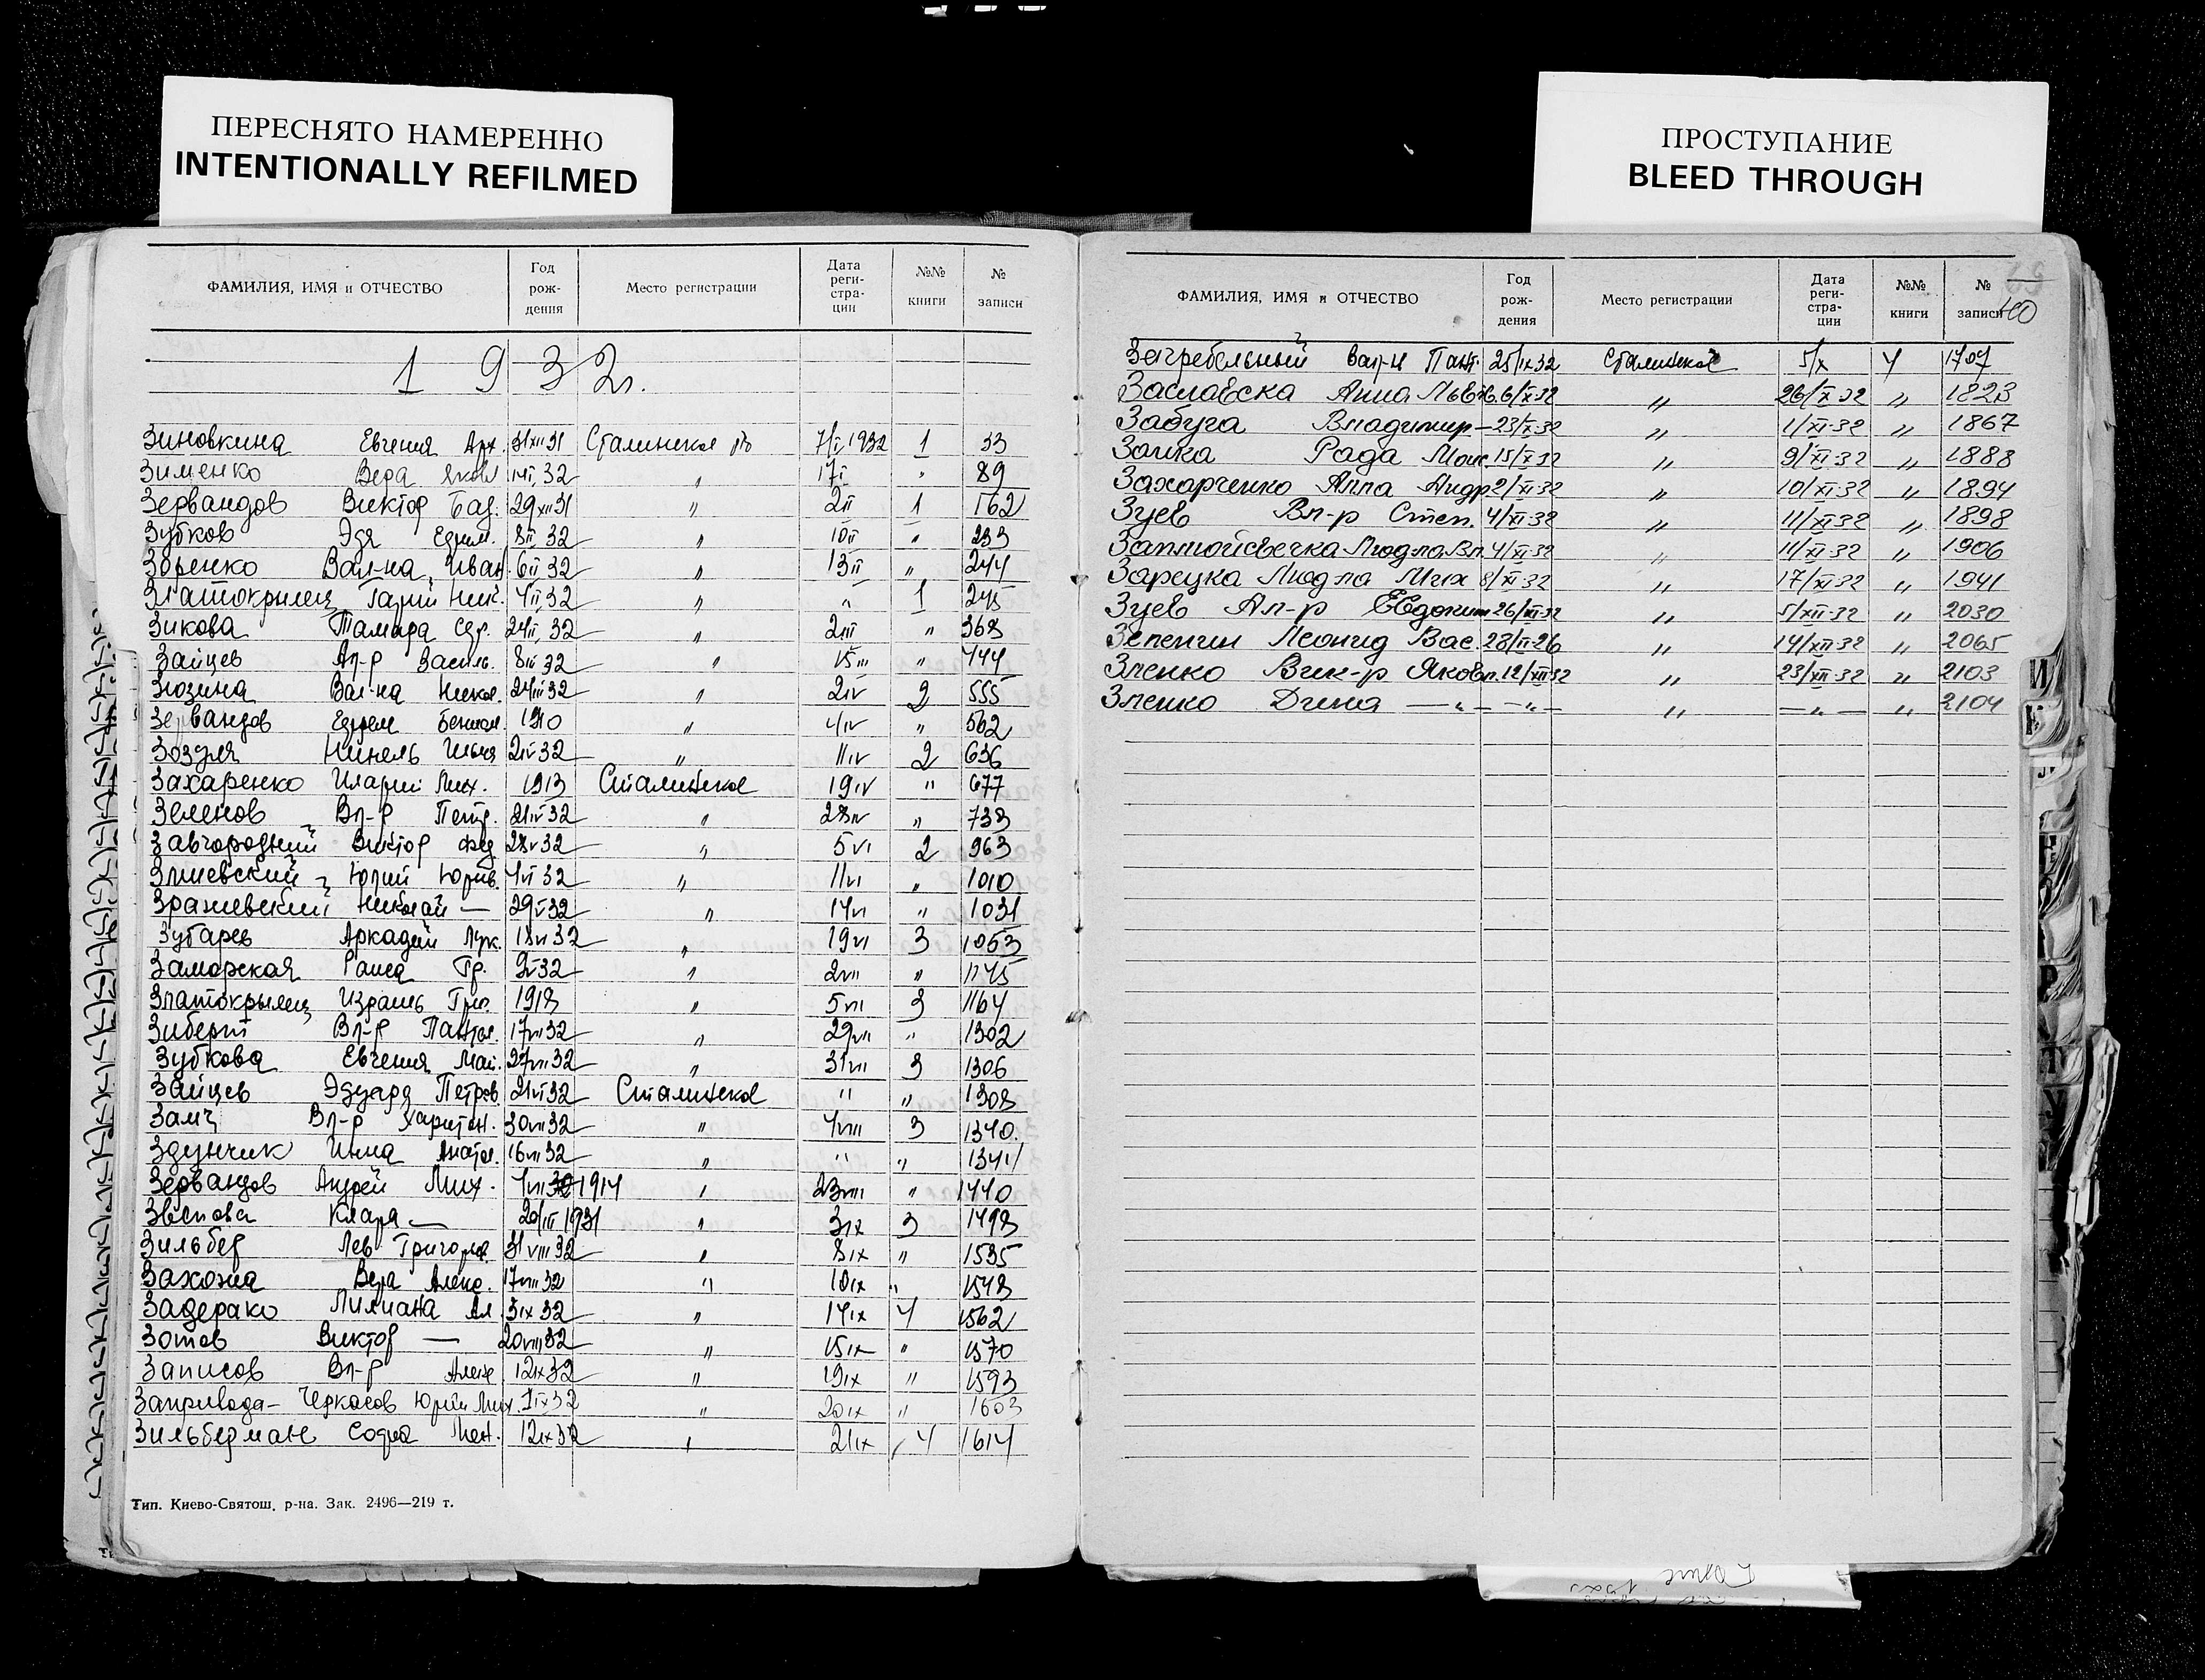 ПЕРЕСНЯТО НАМЕРЕННО
INTENTIONALLY REFILMED
ПРОСТУПАНИЕ
BLEED THROUGH
ФАМИЛИЯ, ИМЯ и ОТЧЕСТВО Год рождения Место регистрации Дата регистрации №№ книги № записи
1 9 3 2 г.
Зиновкина Евгения Арх. 31 XII 31 Сталинское 7/I 1932 1 33
Зименко Вера Яковл 32 17 I " 89
Зервандов Виктор Баг. 29 XII 31 " 2 II 1 162
Зубков Эдя Ефим. 8 II 32 " 10 II " 233
Зоренко Вал-на Иван 6 II 32 " 13 II " 244
Златокрилец Гарий Ник. 4 II 32 " " 1 245
Зикова Тамара 24 II 32 " 2 III " 368
Зайцев Ал-р Василь. 8 III 32 " 15 III " 444
Зюзина Вал-на Никол. 24 III 32 " 2 IV 2 555
Зервандов Ефрем 1910 " 4 IV " 562
Зозуля Нинель Ильи 2 IV 32 " 11 IV 2 636
Захаренко Иларий Мих. 1913 Сталинское 19 IV " 677
Зеленов Вл-р Петр. 21 IV 32 " 28 IV " 738
Завгородний Виктор Фед 28 V 32 " 5 VI 2 963
Змиевский Юрий Юрив. 4 VI 32 " 11 VI " 1010
Зражевский Николай — 29 V 32 " 14 VI " 1031
Зубарев Аркадий Лук. 18 VI 32 " 19 VI 3 1053
Заморская Раиса Гр. 9 V 32 " 2 VII " 1145
Златокрылец Израиль Григ. 1918 " 5 VII 3 1164
Зиберт Вл-р Пантел. 17 VII 32 " 29 VII " 1302
Зубкова Евгения 27 VII 32 " 31 VII 3 1306
Зайцев Эдуард Петров. 21 VI 32 Сталинское " " 1308
Замч Вл-р Харитон. 30 VII 32 " 4 VIII 3 1340.
Здунчик Инна Анатол. 16 VII 32 " " " 1341
Зервандов Андрей Мих. 1914 " 23 VIII " 1440
Звепова Клара — 20/III 1931 " 3 IX 3 1498
Зильбер Лев Григорьев. 31 VIII 32 " 8 IX " 1535
Захожа Вера Алекс. 17 VIII 32 " 10 IX " 1548
Задерако Лилиана Ал. 3 IX 32 " 14 IX 4 1562
Зотов Виктор — 20 VIII 32 " 15 IX " 1570
Записов Вл-р Алекс 12 IX 32 " 19 IX " 1593
Запривода- Черкасов Юрий Мих. 1 IX 32 " 20 IX " 1603
Зильберман Софья 12 IX 32 " 21 IX 4 1614
Тип. Киево-Святош. р-на. Зак. 2496—219 т.
ФАМИЛИЯ, ИМЯ и ОТЧЕСТВО Год рождения Место регистрации Дата регистрации №№ книги № записи
40
Загребельный Вал-н Пант. 25/IX 32 Сталинское 5/X 4 1707
Заславска Анна Львів. 6/X-32 " 26/X-32 " 1823
Забуга Владимир — 23/X-32 " 1/XI-32 " 1867
Заика Рада Моис. 15/X-32 " 9/XI-32 " 1888
Захарченко Алла Андр 2/XI-32 " 10/XI-32 " 1894
Зуев Вл-р Степ. 4/XI-32 " 11/XI-32 " 1898
Заплюйсвечка Людла Вл. 4/XI-32 " 11/XI-32 " 1906
Зарецка Людла Мих 8/XI-32 " 17/XI-32 " 1941
Зуев Ал-р Евдоким 26/XI-32 " 5/XII-32 " 2030
Зепенгин Леонид Вас. 23/II-26 " 14/XII-32 " 2065
Зленко Вик-р Яковл. 12/XII-32 " 23/XII-32 " 2103
Зленко Дина —"— —"— " —"— " 2104